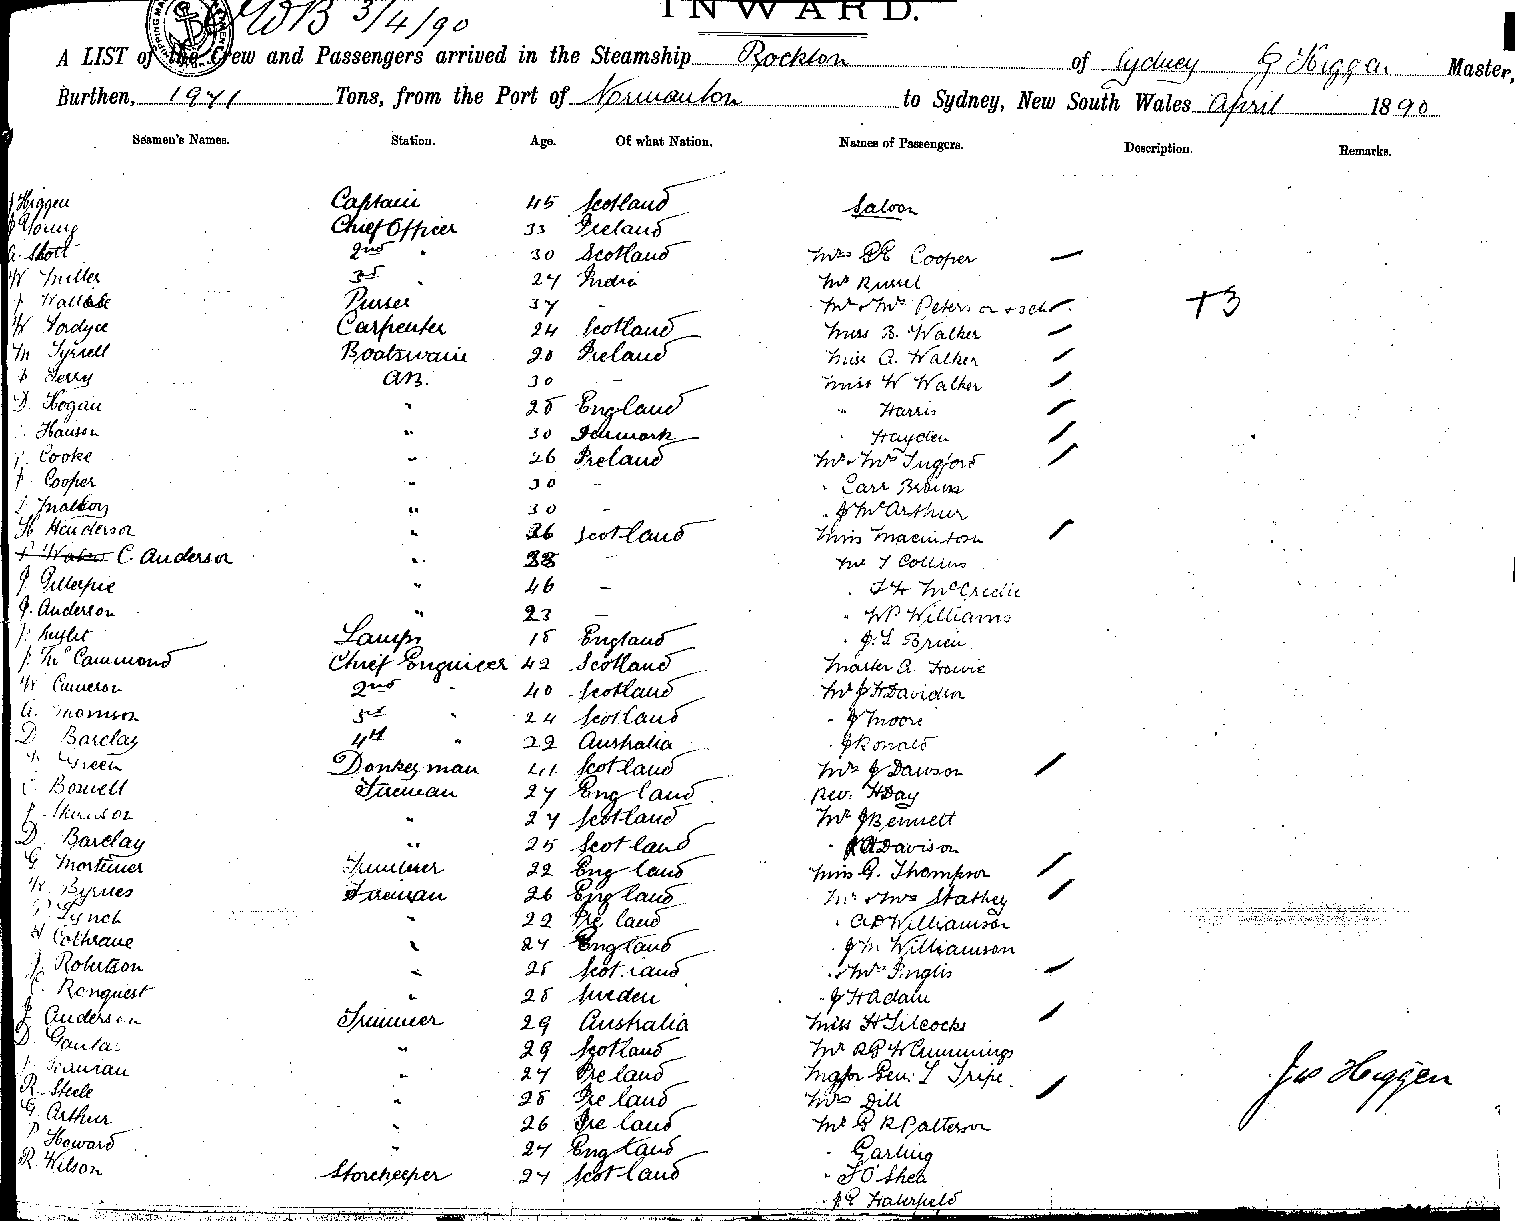 INWARD.
WB 3/4/90
A LIST of the Crew and Passengers arrived in the Steamship Rockton of Sydney J Higgen Master,
Burthen, 1971 Tons, from the Port of Normanton to Sydney, New South Wales April 1890
Seamen's Names. Station. Age. Of what Nation. Names of Passengers. Description. Remarks.
J Higgen Captain 45 Scotland Saloon
Young Chief Officer 33 Ireland
A. Scott 2nd " 30 Scotland Mrs Cooper
W Miller 3rd 27 India Mr Russel
Wallace Purser 37 - Mr & Mrs Peterson + 3 ch. +3
W Fordyce Carpenter 24 Scotland Miss B. Walker
M Tyrrell Boatswain 20 Ireland Miss A. Walker
Terry AB. 30 - Miss W Walker
D. Hogan " 28 England " Harris
Hanson " 30 Denmark " Hayden
Cooke " 26 Ireland Mr & Mrs Tugford
Cooper " 30 - " Carr Brown
" 30 - " J McArthur
H Henderson " 36 Scotland Miss Macintosh
C. Anderson " 38 - Mr T Collins
J Gillespie " 46 - " McCredie
J. Anderson " 23 - " WP Williams
Lamps 18 England " J. L Brien
J. McCammond Chief Engineer 42 Scotland Master A Howie
W Cameron 2nd " 40 Scotland Mr J H Davidson
A. Thomson 3rd " 24 Scotland " J Moore
D Barclay 4th " 22 Australia " J Ronald
Green Donkeyman 41 Scotland Mrs J Dawson
Boswell Fireman 27 England Rev. H Day
" 27 Scotland Mr J Bennett
D. Barclay " 25 Scotland " Davison
G Mortimer Trimmer 22 England Miss G. Thompson
W. Byrnes Fireman 26 England Mr & Mrs Stathey
Lynch " 22 Ireland " Williamson
Cothrane " 27 England " J M Williamson
J. Robertson " 28 Scotland " & Mrs Inglis
C. Ronquest " 28 Sweden " J H Adam
J Anderson Trimmer 29 Australia Miss H Silcocks
D. " 29 Scotland Mr Cummings
" 27 Ireland Major Gen. T Tripe
R. Steele " 28 Ireland Mrs Dill Jas Higgen
G Arthur " 26 Ireland Mr G R Patterson
P Howard " 27 England " Garling
R Wilson Storekeeper 27 Scotland " T O'Shea